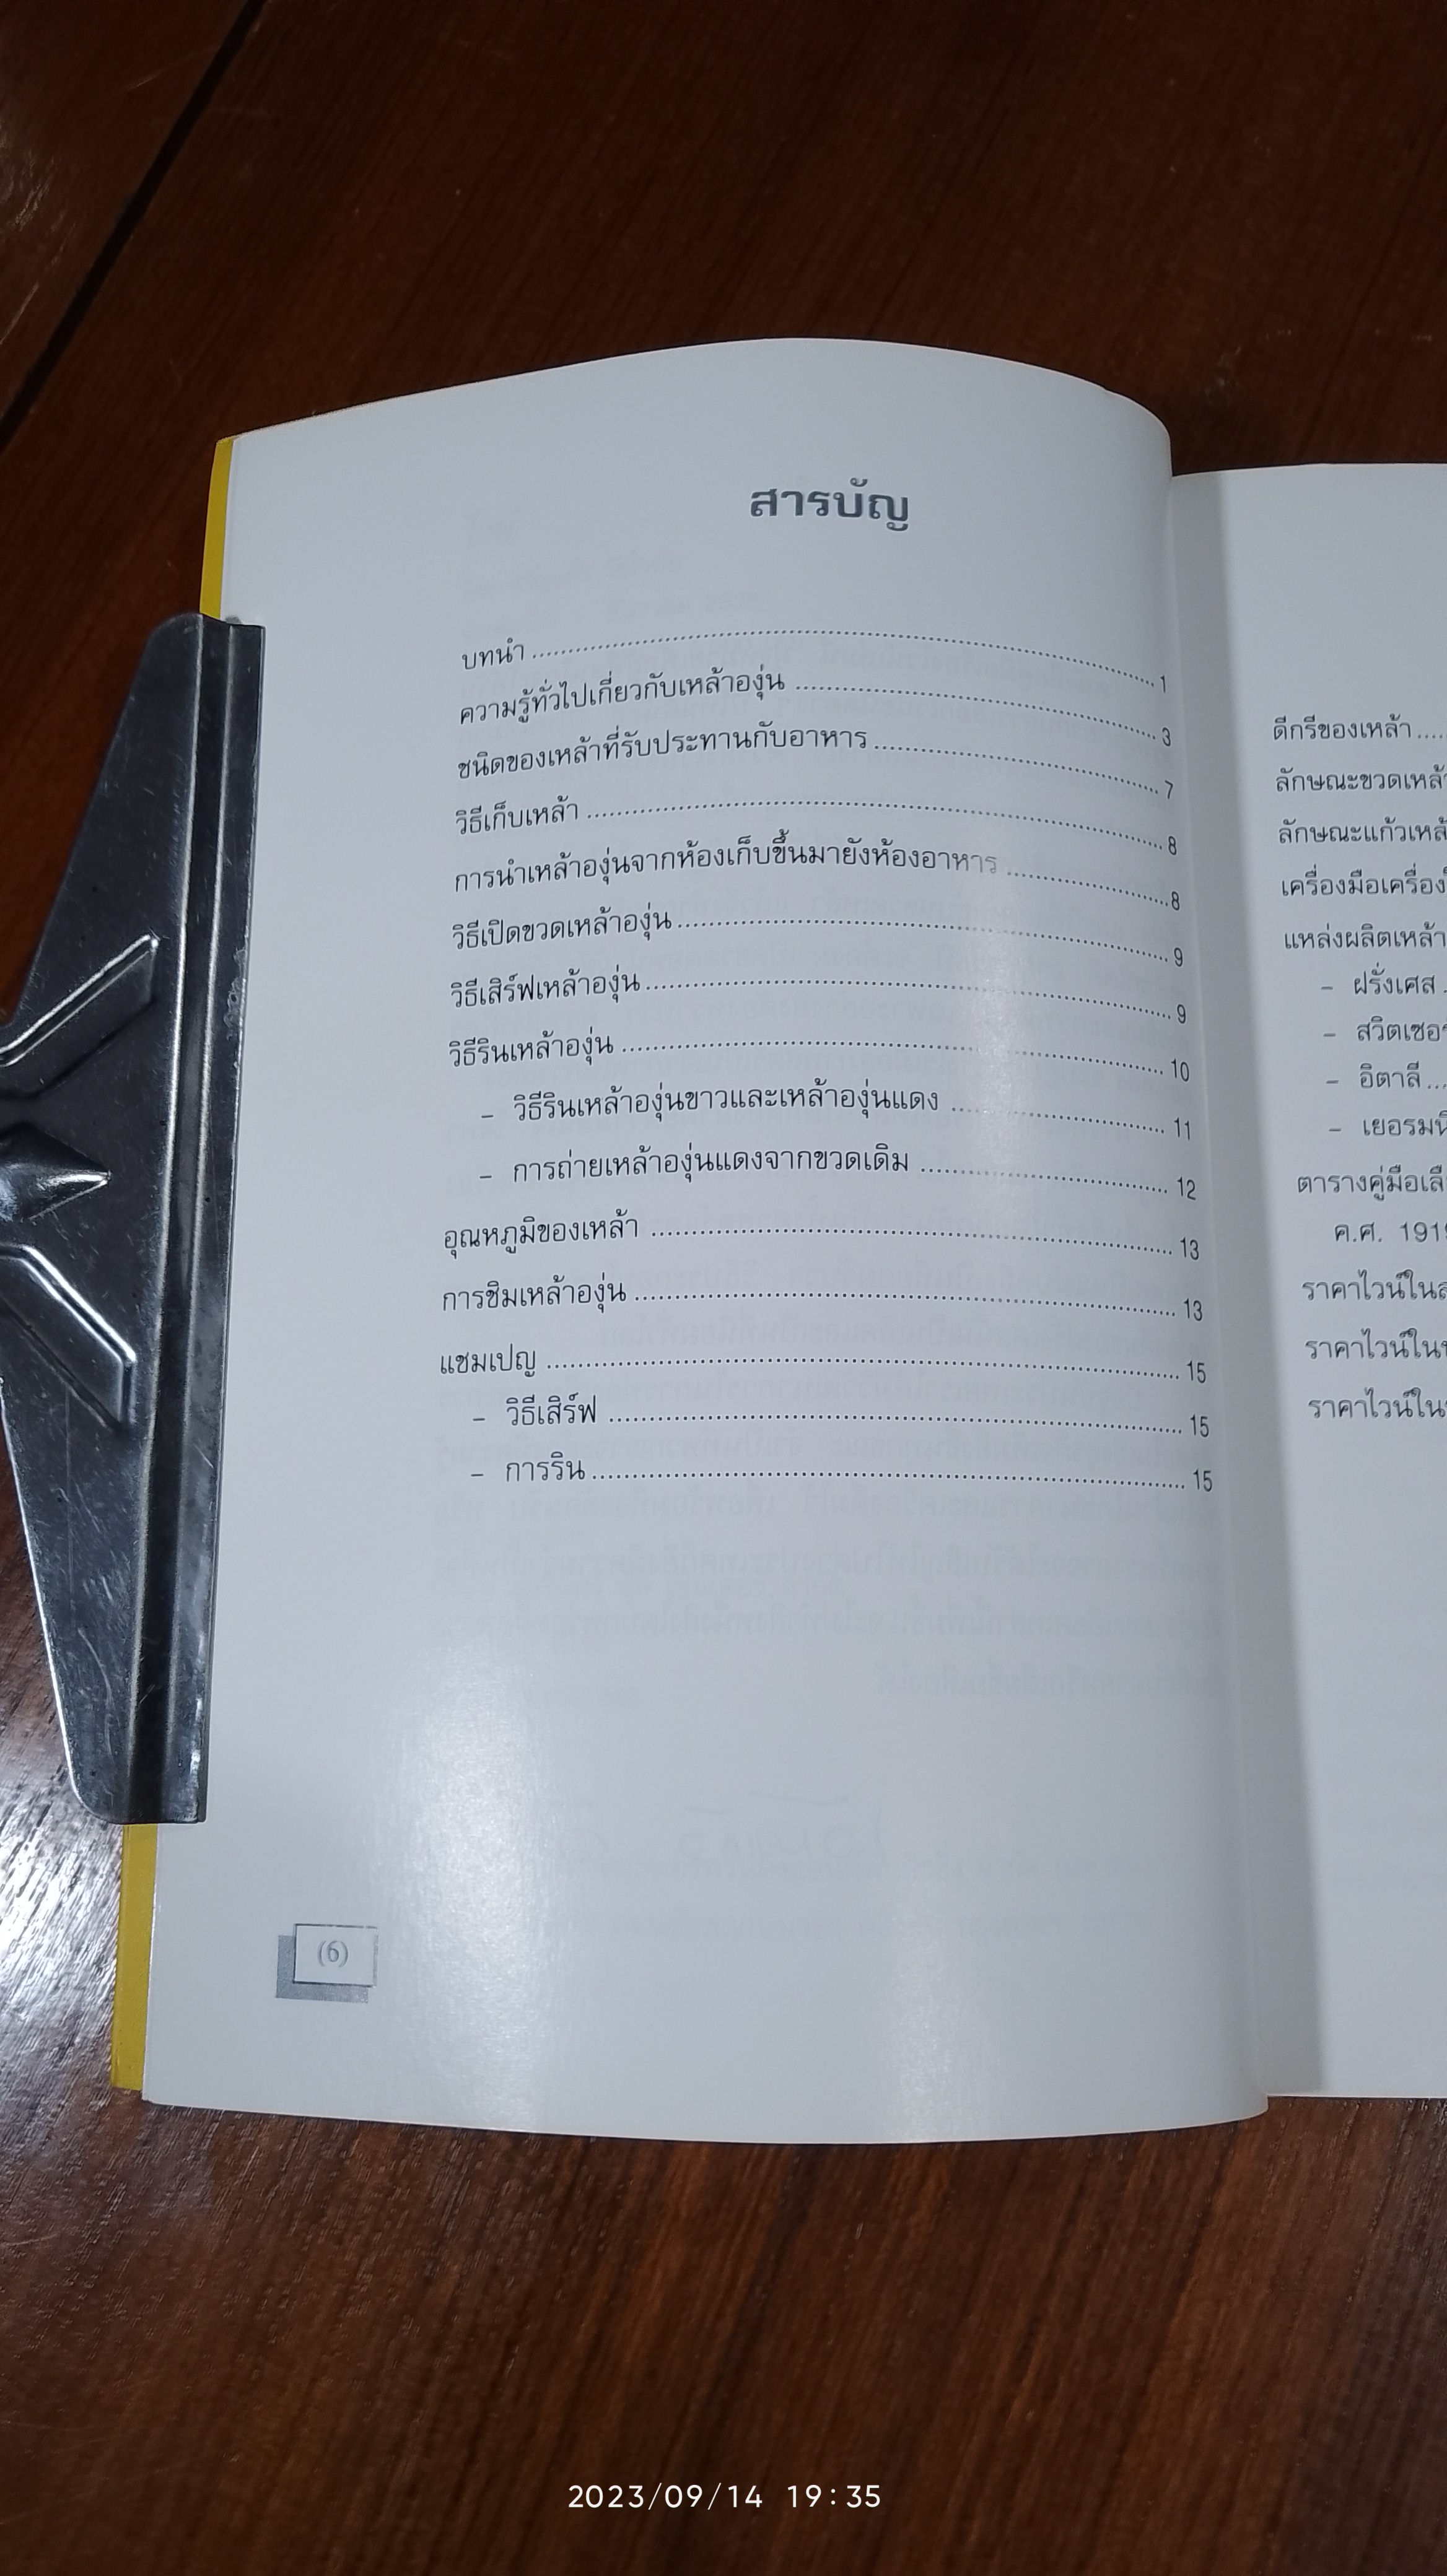 สารบัญ
บทนำ ........ 1
ความรู้ทั่วไปเกี่ยวกับเหล้าองุ่น ........ 3
ชนิดของเหล้าที่รับประทานกับอาหาร ........ 7
วิธีเก็บเหล้า ........ 8
การนำเหล้าองุ่นจากห้องเก็บขึ้นมายังห้องอาหาร ........ 8
วิธีเปิดขวดเหล้าองุ่น ........ 9
วิธีเสิร์ฟเหล้าองุ่น ........ 9
วิธีรินเหล้าองุ่น ........ 10
– วิธีรินเหล้าองุ่นขาวและเหล้าองุ่นแดง ........ 11
– การถ่ายเหล้าองุ่นแดงจากขวดเดิม ........ 12
อุณหภูมิของเหล้า ........ 13
การชิมเหล้าองุ่น ........ 13
แชมเปญ ........ 15
– วิธีเสิร์ฟ ........ 15
– การริน ........ 15
(6)
ดีกรีของเหล้า ....
ลักษณะขวดเหล้
ลักษณะแก้วเหล้
เครื่องมือเครื่อง
แหล่งผลิตเหล้า
– ฝรั่งเศส .
– สวิตเซอ
– อิตาลี ...
– เยอรมนี
ตารางคู่มือเลื
ค.ศ. 191
ราคาไวน์ใน
ราคาไวน์ใน
ราคาไวน์ใน
2023/09/14 19:35